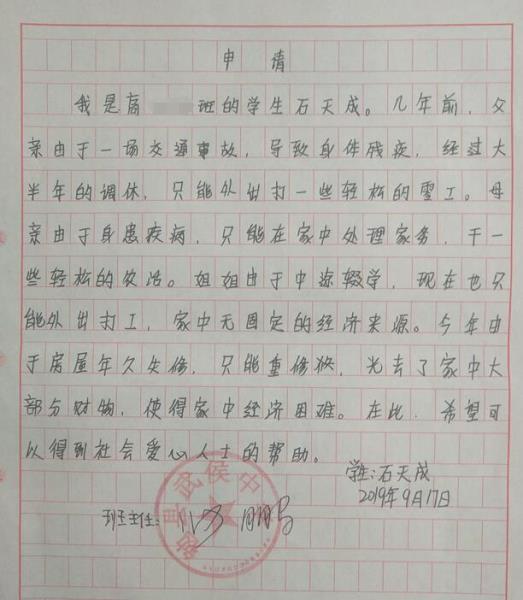 申请
我是高 班的学生石天成。几年前,父
亲由于一场交通事故,导致身体残疾,经过大
半年的调休,只能外出打一些轻松的零工。母
亲由于身患疾病,只能在家中处理家务,干一
些轻松的农活。姐姐由于中途辍学,现在也只
能外出打工,家中无固定的经济来源。今年由
于房屋年久失修,只能重修缮,光去了家中大
部分财物,使得家中经济困难。在此,希望可
以得到社会爱心人士的帮助。
学生:石天成
2019年9月17日
班主任:
勉县武侯中